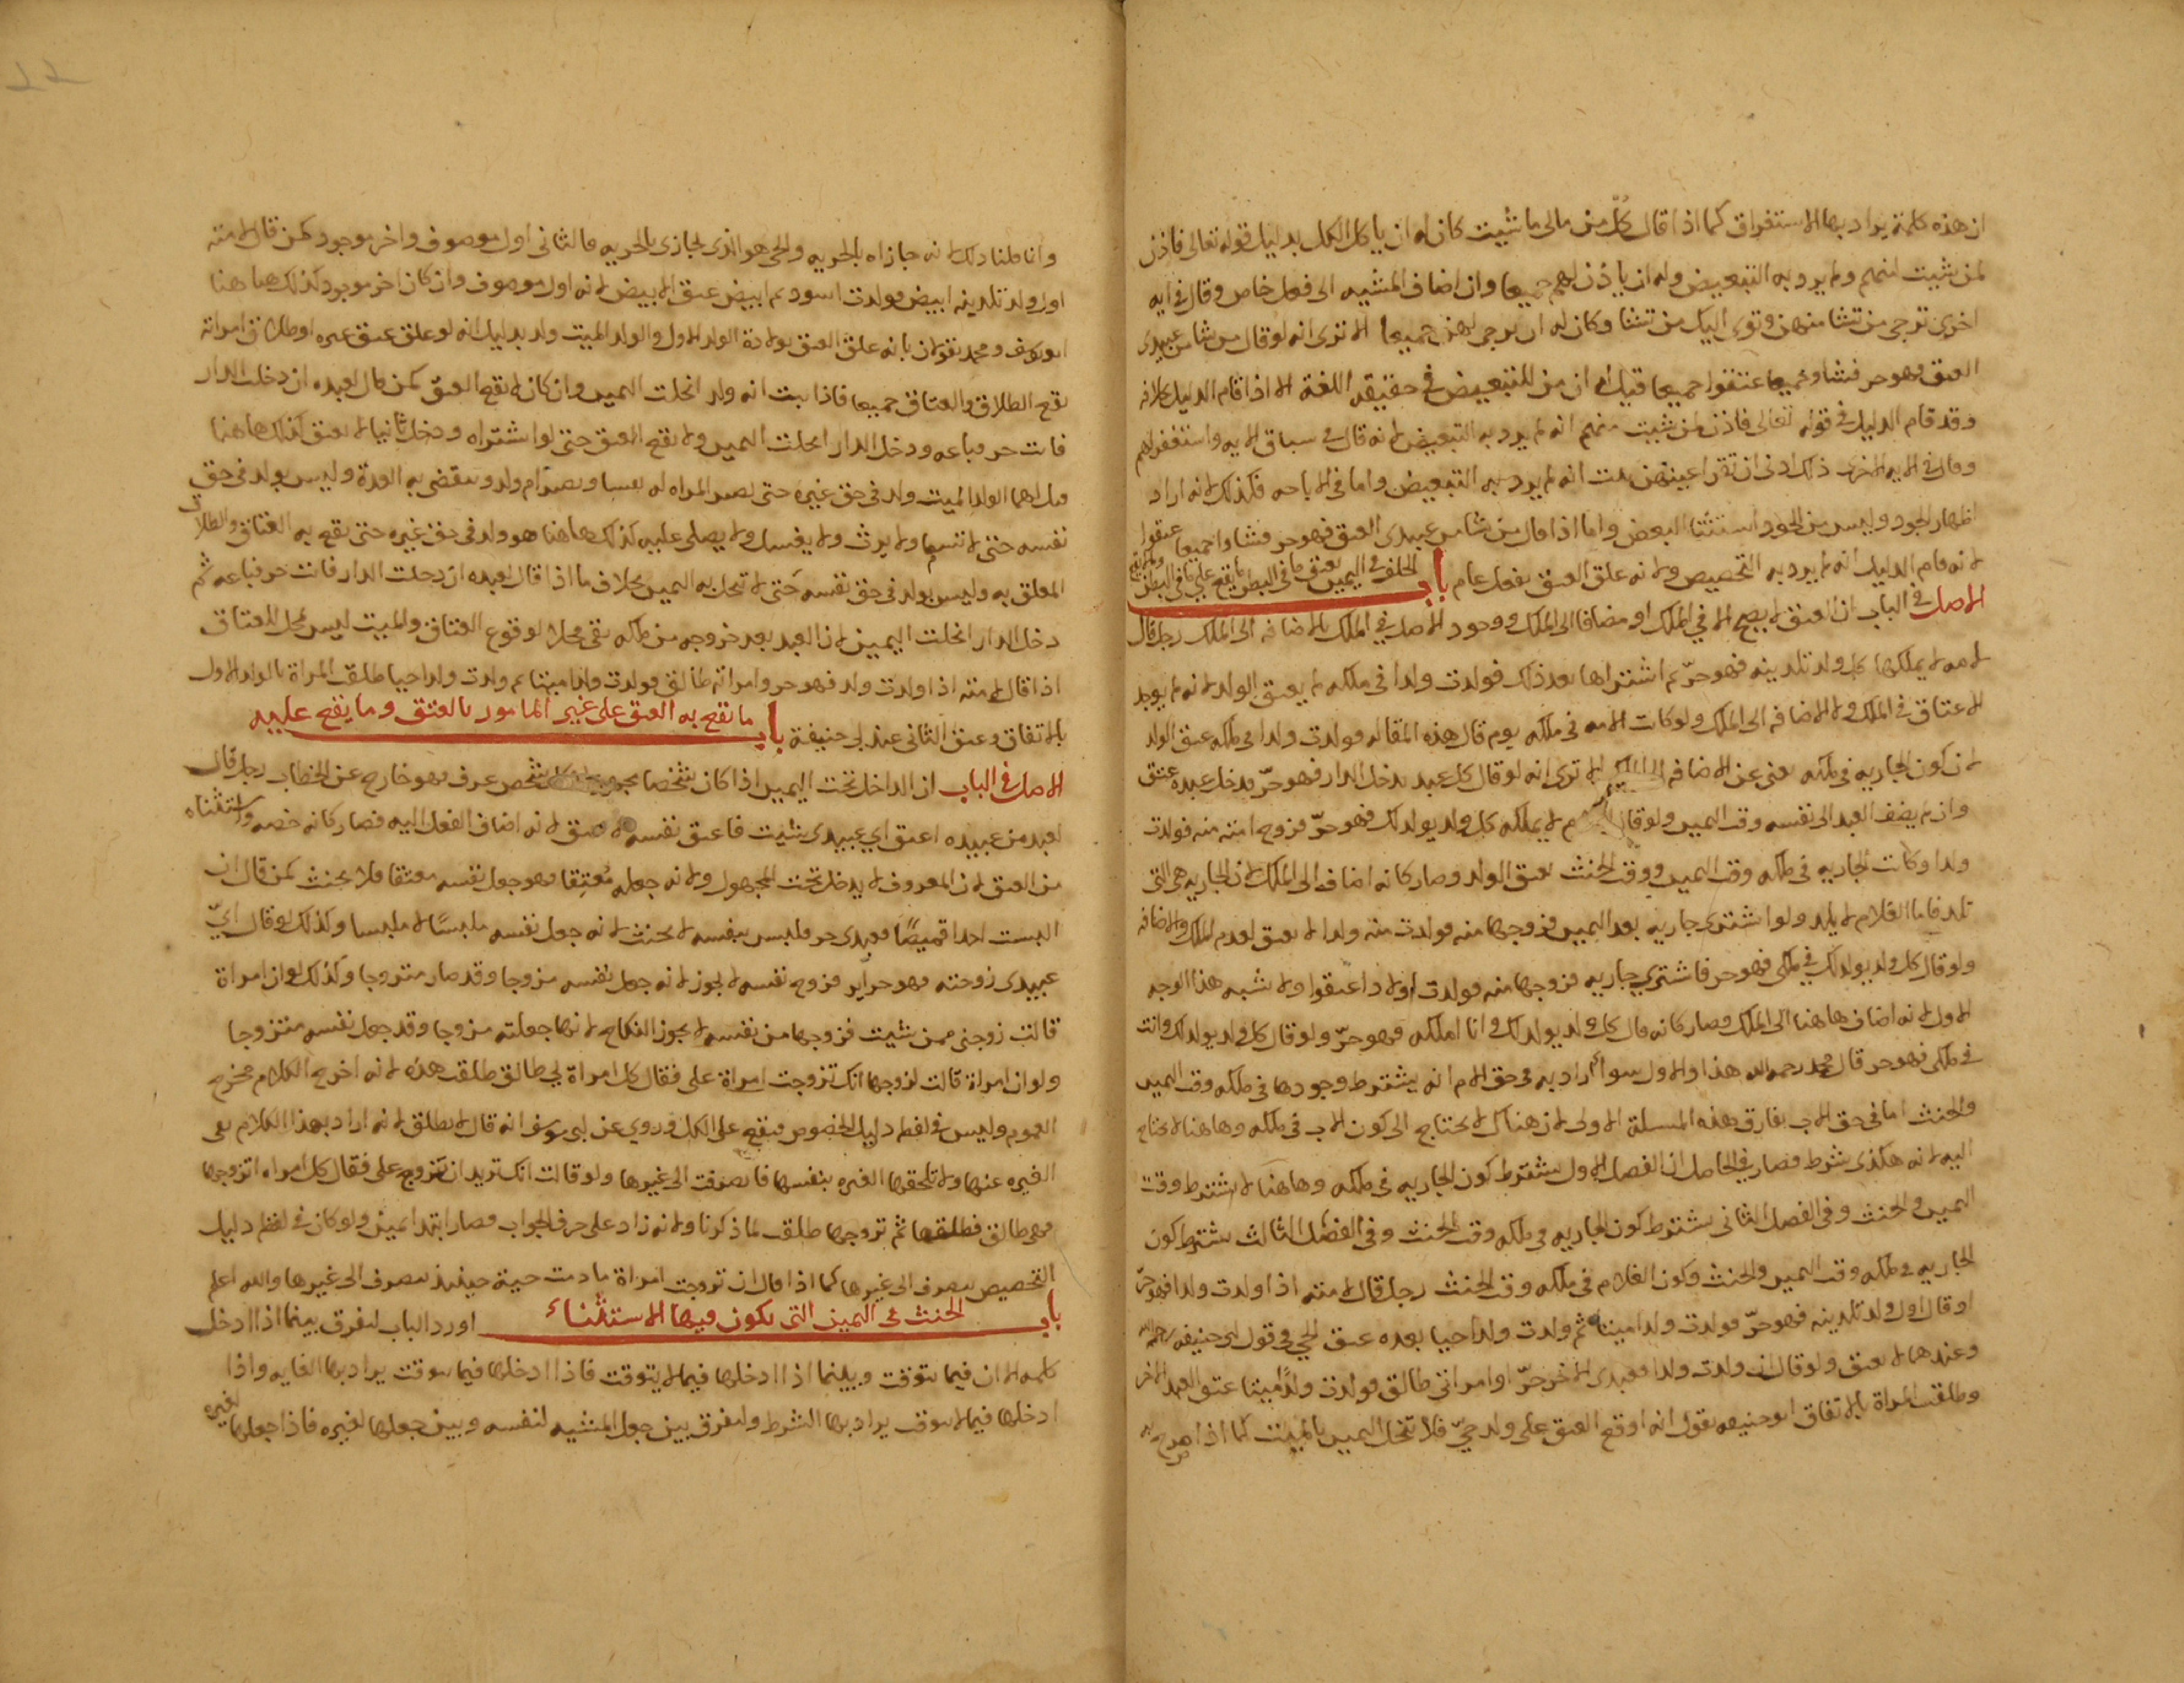 ان هذه كلمة يراد بها الاستغراق كما اذا قال كُلّ من مالى ما شيت كان له ان ياكل الكل بدليل قوله تعالى فاذن
لمن شيت منهم ولم يرد به التبعيض وله ان ياذن لهم جميعا وان اضاف المشيه الى فعل خاص وقال فى ايه
اخرى ترجى من تشا منهن وتوى اليك من تشا وكان له ان يرجى لهن جميعا الا ترى انه لو قال من شا من عبيدى
العتق فهو حر فشاو جميعا عتقوا جميعا قيل له ان من للتبعيض فى حقيقه اللغة الا اذا قام الدليل بخلافه
وقد قام الدليل فى قوله تعالى فاذن لمن شيت منهم انه لم يرد به التبعيض لانه قال فى سياق الايه واستغفر لهم
وقال فى الايه الاخرى ذلك ادنى ان تقر اعينهن علمت انه لم يرد به التبعيض واما فى الاباحه فكذلك لانه اراد
اظهار الجود وليس من الجود استثنا البعض واما اذا قال من شا من عبيدى العتق فهو حر فشاوا جميعا عتقوا
لانه قام الدليل انه لم يرد به التخصيص ولانه علق العتق بفعل عام باب الحلف فى اليمين بعتق ما فى البطن ما يقع على ما فى البطن
الاصل فى الباب ان العتق لا يصح الا فى الملك او مضافا الى الملك ووجود الاصل فى الملك كالاضافه الى الملك رجل قال
لامه لا يملكها كل ولد تلدينه فهو حرّ ثم اشتراها بعد ذلك فولدت ولدا فى ملكه لم يعتق الولد لانه لم يوجد
الاعتاق فى الملك ولا الاضافه الى الملك ولو كانت الامه فى ملكه يوم قال هذه المقاله فولدت ولدا فى ملكه عتق الولد
لان كون الجاريه فى ملكه يغنى عن الاضافه الا ترى انه لو قال كل عبد يدخل الدار فهو حرّ فدخل عبده عتق
وان لم يضف العبد الى نفسه وقت اليمين ولو قال لا يملكه كل ولد يولد لك فهو حرّ فزوجه امته منه فولدت
ولدا وكانت الجاريه فى ملكه وقت اليمين ووقت الحنث يعتق الولد وصار كانه اضاف الى الملك لان الجاريه هى التى
تلد فاما الغلام لا يلد ولو اشترى جاريه بعد اليمين فزوجها منه فولدت منه ولدا لا يعتق لعدم الملك والاضافه
ولو قال كل ولد يولد لك فى ملكى فهو حر فاشترى جاريه فزوجها منه فولدت اولادا عتقوا ولا يشبه هذا الوجه
الاول لانه اضاف ها هنا الى الملك وصار كانه قال كل ولد يولد لك وانا املكه فهو حرّ ولو قال كل ولد يولد لك وانت
فى ملكى فهو حر قال محمد رحمه الله هذا والاول سوا اراد به فى حق الام انه يشترط وجودها فى ملكه وقت اليمين
والحنث اما فى حق الاب يفارق هذه المسلة الاولى لان هناك لا يحتاج الى كون الاب فى ملكه وها هنا يحتاج
اليه لانه هكذى شرط فصار فى الحاصل ان الفصل الاول يشترط كون الجاريه فى ملكه وها هنا لا يشترط وقت
اليمين والحنث وفى الفصل الثانى يشترط كون الجاريه فى ملكه وقت الحنث وفى الفصل الثالث يشترط كون
الجاريه فى ملكه وقت اليمين والحنث وكون الغلام فى ملكه وقت الحنث رجل قال لامته اذا ولدت ولدا فهو حرّ
او قال اول ولد تلدينه فهو حرّ فولدت ولدا ميتا ثم ولدت ولدا حيا بعده عتق الحي فى قول ابى حنيفه رحمه الله
وعندهما لا يعتق ولو قال ان ولدت ولدا فعبدى الاخر حرّ او امراتى طالق فولدت ولدًا ميتا عتق العبد الاخر
وطلقت المراة بالاتفاق ابو حنيفه يقول انه اوقع العتق على ولد حيّ فلا تنحل اليمين بالميت كما اذا صرح به
وانما قلنا ذلك لانه جازاه بالحريه والحى هو الذى يجازى بالحريه فالثانى اول موصوف واخر موجود كمن قال لامته
اول ولد تلدينه ابيض فولدت اسود ثم ابيض عتق الابيض لانه اول موصوف وان كان اخر موجود كذلك ها هنا
ابو يوسف ومحمد يقولان بانه علق العتق بولادة الولد الاول والولد الميت ولد بدليل انه لو علق عتق غيره او طلاق امراته
يقع الطلاق والعتاق جميعا فاذا ثبت انه ولد انحلت اليمين وان كان لا يقع العتق كمن قال لعبده ان دخلت الدار
فانت حر فباعه ودخل الدار انحلت اليمين ولا يقع العتق حتى لو اشتراه ودخل ثانيا لا يعتق كذلك ها هنا
قيل لهما الولد الميت ولد فى حق غيره حتى تصير المراه له نفسا وتصير ام ولد وتنقضى به العدة وليس بولد فى حق
نفسه حتى لا تسمى ولا يرث ولا يغسل ولا يصلى عليه كذلك ها هنا هو ولد فى حق غيره حتى يقع به العتاق والطلاق
المعلق به وليس بولد فى حق نفسه حتى لا تنحل به اليمين بخلاف ما اذا قال لعبده ان دخلت الدار فانت حر فباعه ثم
دخل الدار انحلت اليمين لان العبد بعد خروجه من ملكه بقى محلا لوقوع العتاق والميت ليس محل للعتاق
اذا قال لامته اذا ولدت ولد فهو حر وامراته طالق فولدت ولدا ميتا ثم ولدت ولدا حيا طلقت المراة بالولد الاول
بالاتفاق وعتق الثانى عند ابى حنيفة باب ما يقع به العتق على غير المامور بالعتق وما يقع عليه
الاصل فى الباب ان الداخل تحت اليمين اذا كان شخصا شخص عرف فهو خارج عن الخطاب رجل قال
لعبد من عبيده اعتق اي عبيدى شيت فاعتق نفسه لا يعتق لانه اضاف الفعل اليه فصار كانه خصه واستثناه
من العتق لان المعروف لا يدخل تحت المجهول ولانه جعله مُعتِقا فهو جعل نفسه معتقا فلا يحنث كمن قال ان
البست احدا قميصًا فعبدى حر فلبس بنفسه لا يحنث لانه جعل نفسه ملبسًا لا ملبسا وكذلك لو قال ايّ
عبيدى زوجته فهو حر فزوج نفسه لا يجوز لانه جعل نفسه مزوجا وقد صار متزوجا وكذلك لو ان امراة
قالت زوجنى ممن شيت فزوجها من نفسه لا يجوز النكاح لانها جعلته مزوجا وقد جعل نفسه متزوجا
ولو ان امراة قالت لزوجها انك تزوجت امراة على فقال كل امراة لي طالق طلقت هذه لانه اخرج الكلام مخرج
العموم وليس فى لفظه دليل الخصوص فيقع على الكل وروي عن ابى يوسف انه قال لا تطلق لانه اراد بهذا الكلام نفى
الغيره عنها ولا تلحقها الغيره بنفسها فانصرفت الى غيرها ولو قالت انك تريد ان تتزوج على فقال كل امراه اتزوجها
فهى طالق فطلقها ثم تزوجها طلقت لما ذكرنا ولانه زاد على حرف الجواب فصار ابتدا يمين ولو كان فى لفظه دليل
التخصيص ينصرف الى غيرها كما اذا قال ان تزوجت امراة ما دمت حية حينيذ ينصرف الى غيرها والله اعلم
باب الحنث فى اليمين التى يكون فيها الاستثناء اورد الباب لتفرق بينما اذا ادخل
كلمه الا ان فيما يتوقت وبينما اذا ادخلها فيما لا يتوقت فاذا ادخلها فيما يتوقت يراد بها الغايه واذا
ادخلها فيما لا يتوقت يراد بها الشرط ولتفرق بين جعل المشيه لنفسه وبين جعلها لغيره فاذا جعلها لغيره